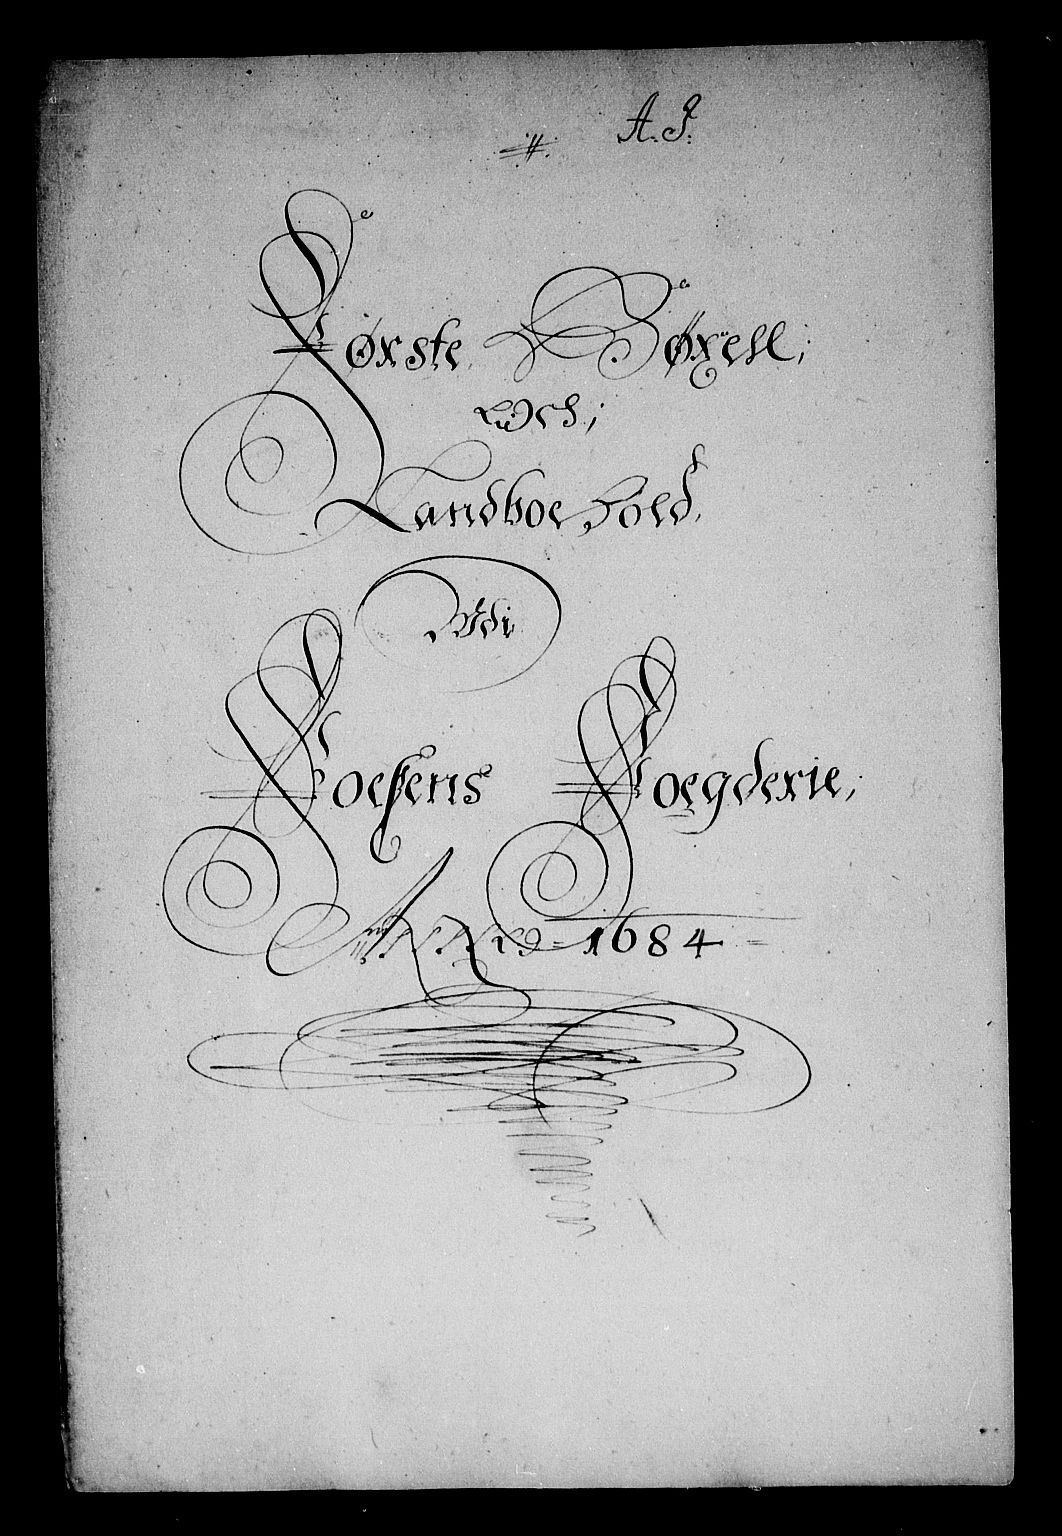 A. J.
Første Bøxell;
Och;
Landboe hold,
Udi
Foesens Foegderie;
ANNO = 1684 =